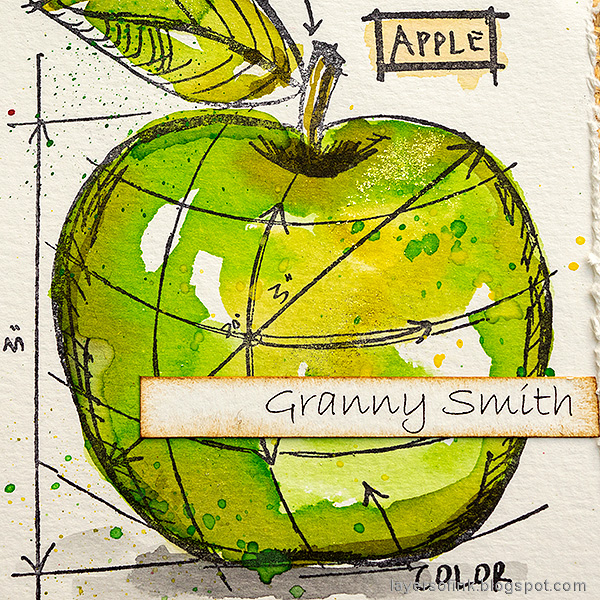 APPLE
3"
3"
Granny Smith
COLOR
layersofink.blogspot.com